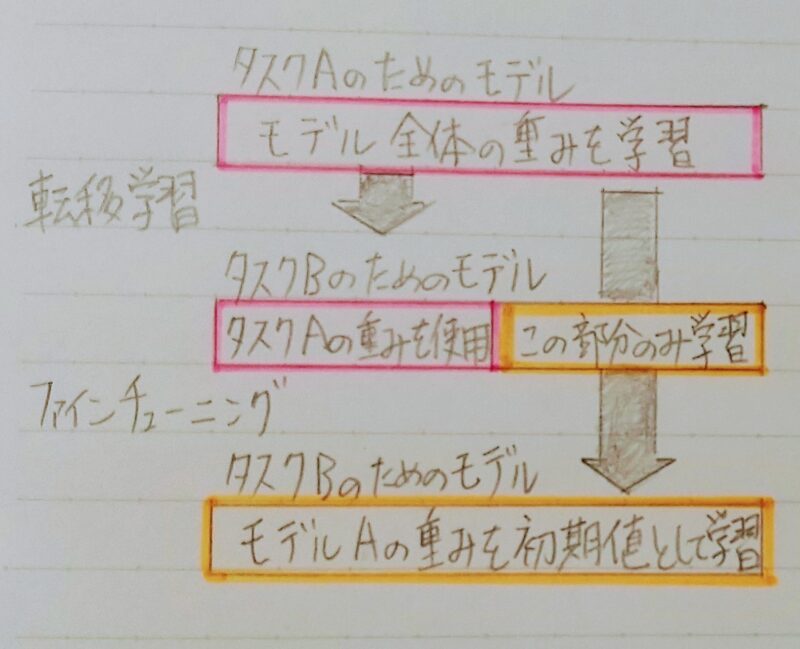 タスクAのためのモデル
モデル全体の重みを学習
転移学習
タスクBのためのモデル
タスクAの重みを使用
この部分のみ学習
ファインチューニング
タスクBのためのモデル
モデルAの重みを初期値として学習